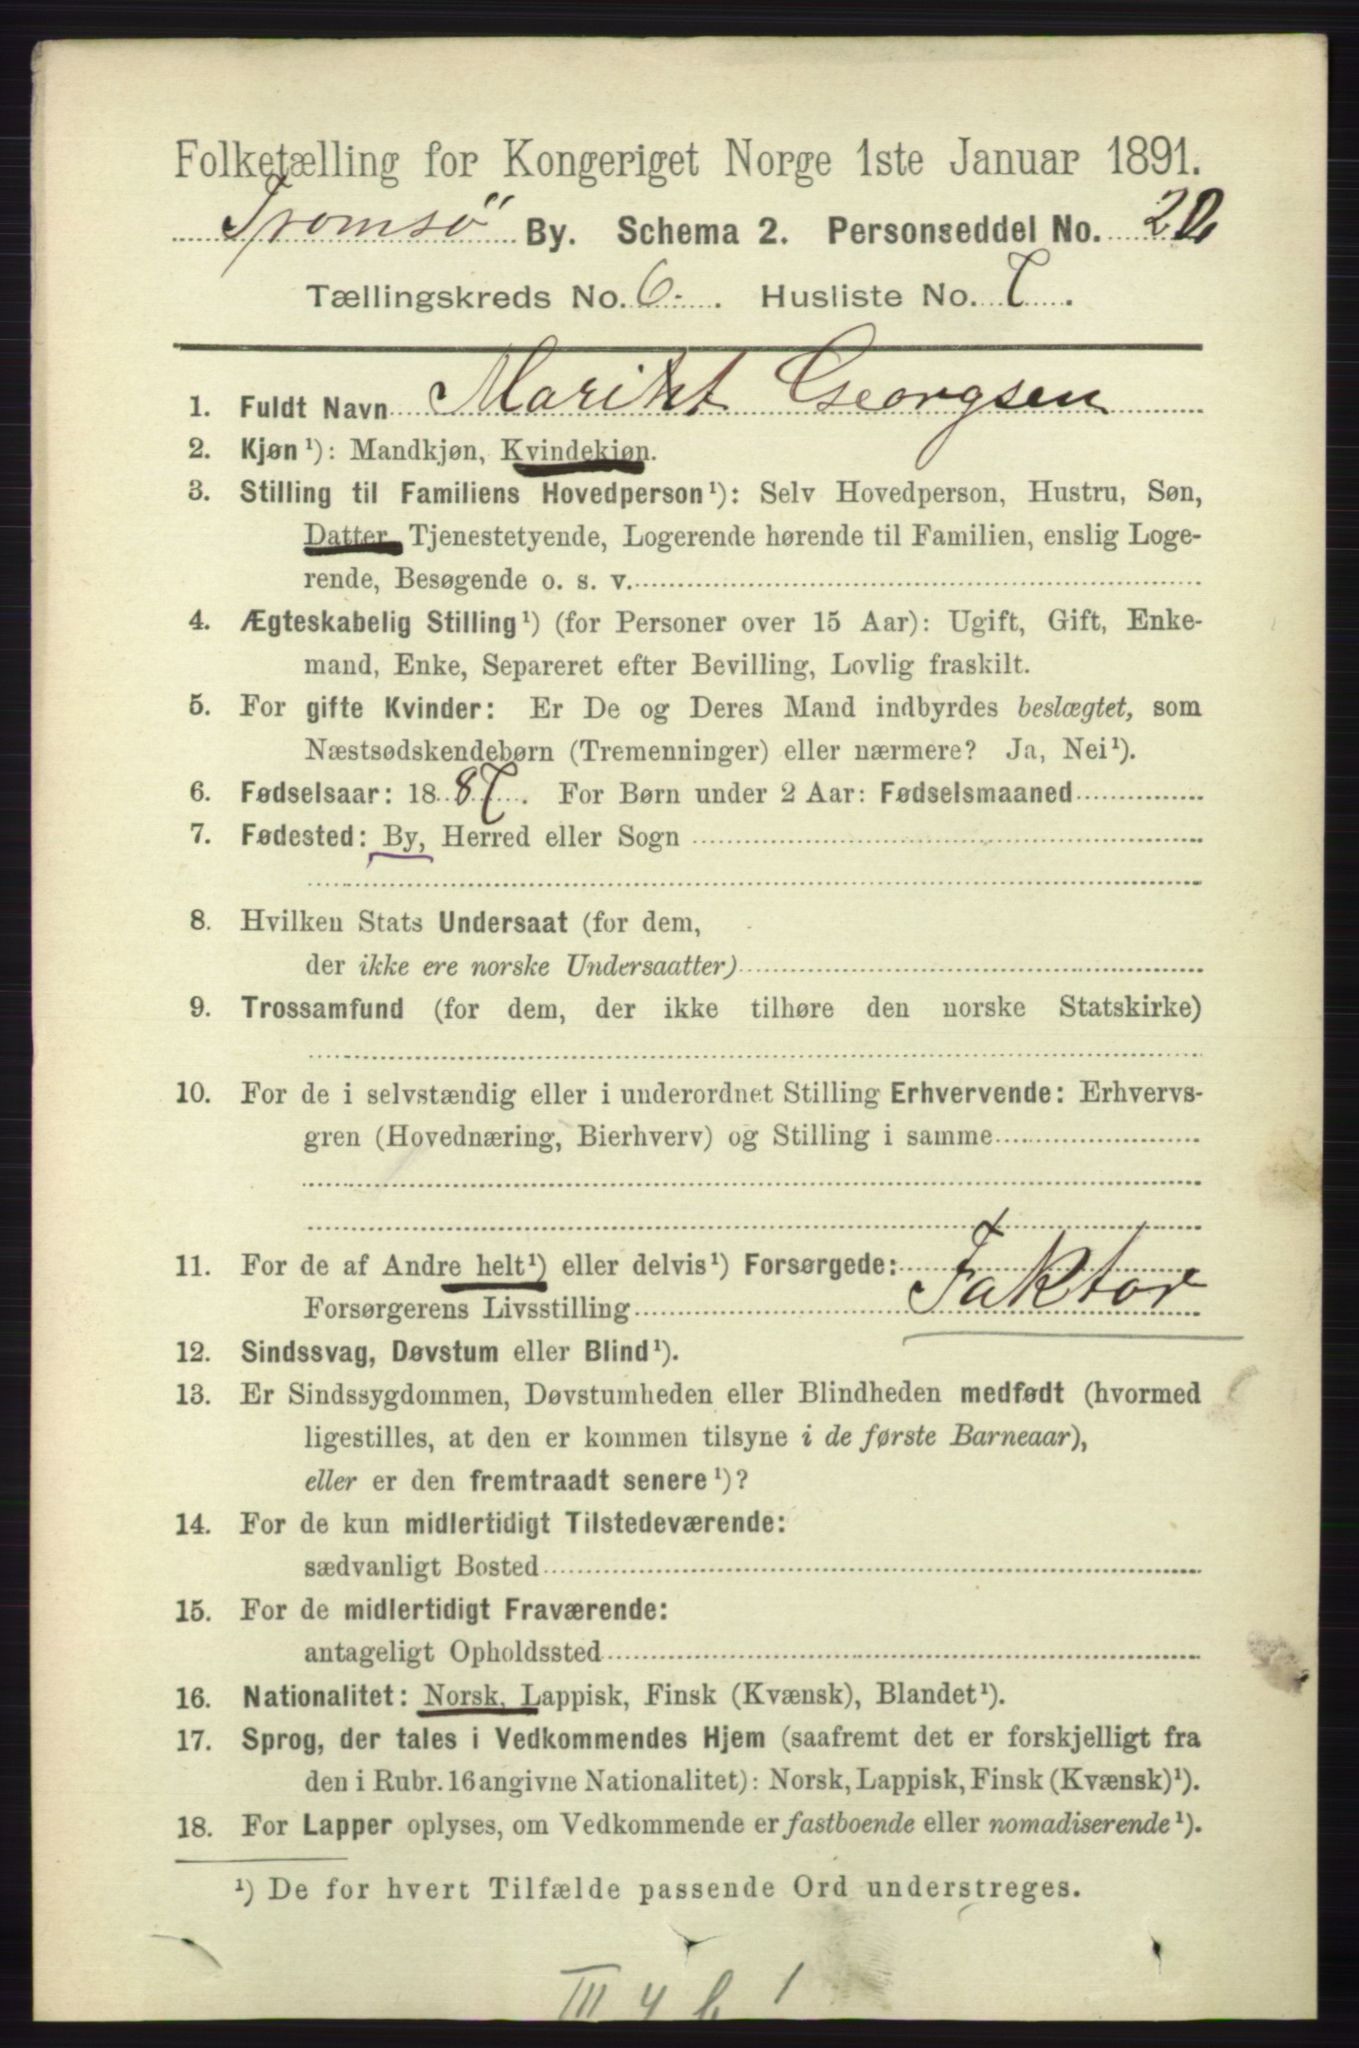 Folketælling for Kongeriget Norge 1ste Januar 1891.
Tromsø By. Schema 2. Personseddel No. 22
Tællingskreds No. 6. Husliste No. 7.
1. Fuldt Navn Marikt Georgsen
2. Kjøn¹): Mandkjøn, Kvindekjøn.
3. Stilling til Familiens Hovedperson¹): Selv Hovedperson, Hustru, Søn,
Datter, Tjenestetyende, Logerende hørende til Familien, enslig Loge-
rende, Besøgende o. s. v.
4. Ægteskabelig Stilling¹) (for Personer over 15 Aar): Ugift, Gift, Enke-
mand, Enke, Separeret efter Bevilling, Lovlig fraskilt.
5. For gifte Kvinder: Er De og Deres Mand indbyrdes beslægtet, som
Næstsødskendebørn (Tremenninger) eller nærmere? Ja, Nei¹).
6. Fødselsaar: 1887. For Børn under 2 Aar: Fødselsmaaned
7. Fødested: By, Herred eller Sogn
8. Hvilken Stats Undersaat (for dem,
der ikke ere norske Undersaatter)
9. Trossamfund (for dem, der ikke tilhøre den norske Statskirke)
10. For de i selvstændig eller i underordnet Stilling Erhvervende: Erhvervs-
gren (Hovednæring, Bierhverv) og Stilling i samme
11. For de af Andre helt¹) eller delvis¹) Forsørgede:
Forsørgerens Livsstilling Faktor
12. Sindssvag, Døvstum eller Blind¹).
13. Er Sindssygdommen, Døvstumheden eller Blindheden medfødt (hvormed
ligestilles, at den er kommen tilsyne i de første Barneaar),
eller er den fremtraadt senere¹)?
14. For de kun midlertidigt Tilstedeværende:
sædvanligt Bosted
15. For de midlertidigt Fraværende:
antageligt Opholdssted
16. Nationalitet: Norsk, Lappisk, Finsk (Kvænsk), Blandet¹).
17. Sprog, der tales i Vedkommendes Hjem (saafremt det er forskjelligt fra
den i Rubr. 16 angivne Nationalitet): Norsk, Lappisk, Finsk (Kvænsk)¹).
18. For Lapper oplyses, om Vedkommende er fastboende eller nomadiserende¹).
¹) De for hvert Tilfælde passende Ord understreges.
III 4 b 1